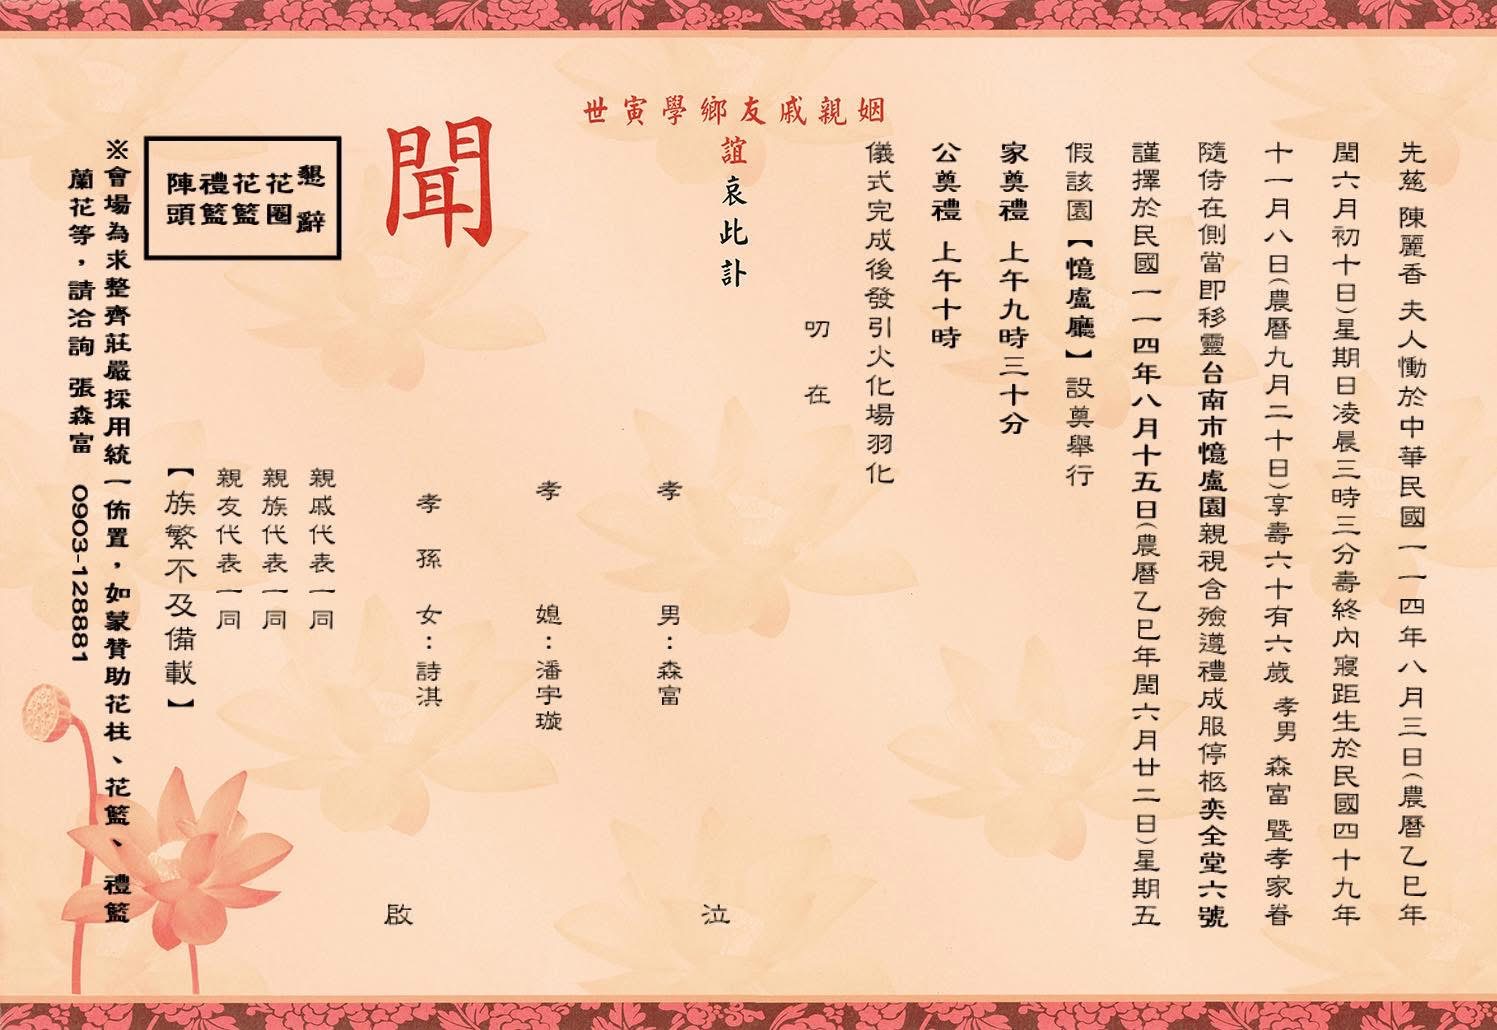 先慈 陳麗香 夫人慟於中華民國一一四年八月三日(農曆乙巳年
閏六月初十日)星期日凌晨三時三分壽終內寢距生於民國四十九年
十一月八日(農曆九月二十日)享壽六十有六歲 孝男 森富 暨孝家眷
隨侍在側當即移靈台南市憶盧園親視含殮遵禮成服停柩奕全堂六號
謹擇於民國一一四年八月十五日(農曆乙巳年閏六月廿二日)星期五
假該園【憶盧廳】設奠舉行
家奠禮 上午九時三十分
公奠禮 上午十時
儀式完成後發引火化場羽化
叨在
姻親戚友鄉學寅世
誼哀此訃
聞
孝男:森富
孝媳:潘宇璇
孝孫女:詩淇
泣啟
親戚代表一同
親族代表一同
親友代表一同
【族繁不及備載】
懇辭
花圈
花籃
禮籃
陣頭
※會場為求整齊莊嚴採用統一佈置,如蒙贊助花柱、花籃、禮籃
蘭花等,請洽詢 張森富 0903-128881